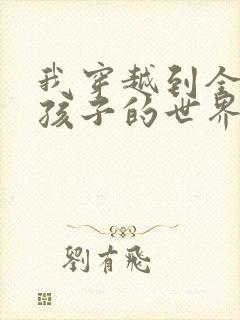 我穿越到全
孩子的世界
劉有飛